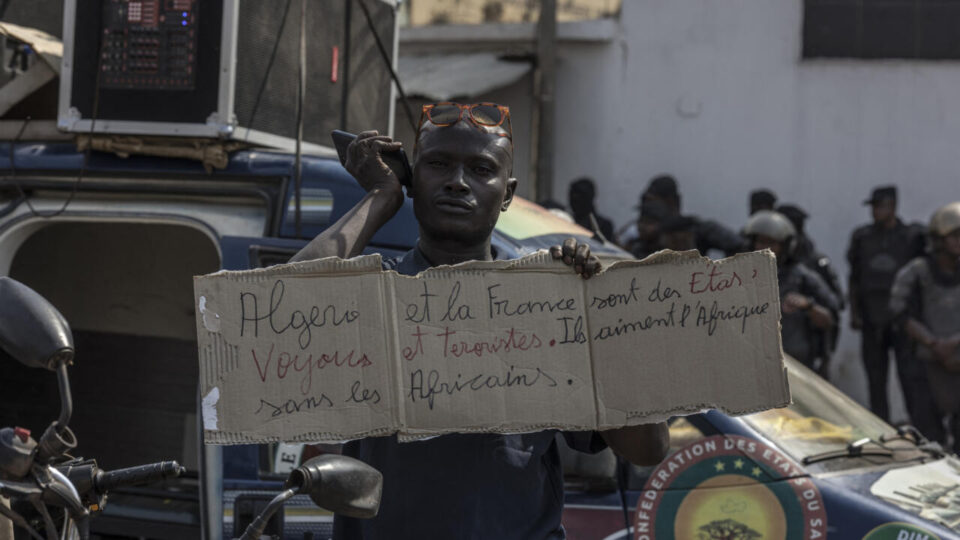 Algero et la France sont des Etas,
Voyous et Teroristes. Ils aiment l'Afrique
sans les Africains.
CONFEDERATION DES ETATS DU SA
DIM